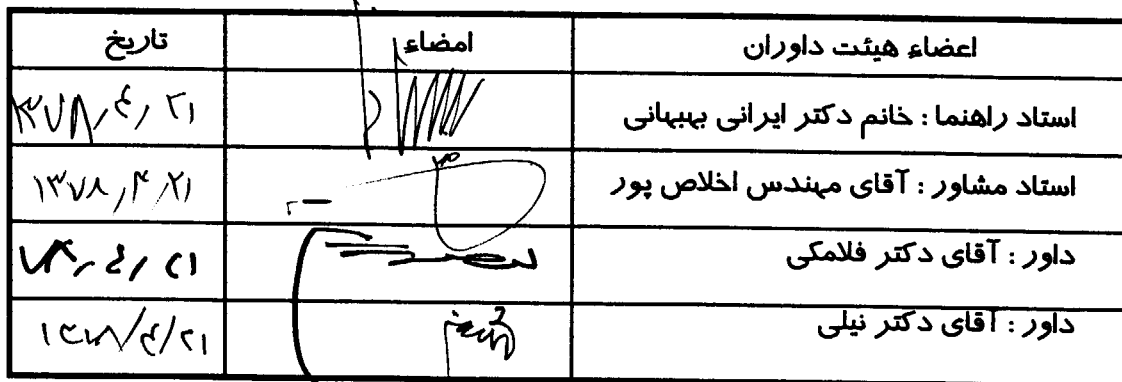 اعضاء هیئت داوران امضاء تاریخ
استاد راهنما : خانم دکتر ایرانی بهبهانی ۳۷۸/۴/۲۱
استاد مشاور : آقای مهندس اخلاص پور ۱۳۷۸/۴/۲۱
داور : آقای دکتر فلامکی ۷۸/۴/۲۱
داور : آقای دکتر نیلی ۱۳۷۸/۴/۲۱